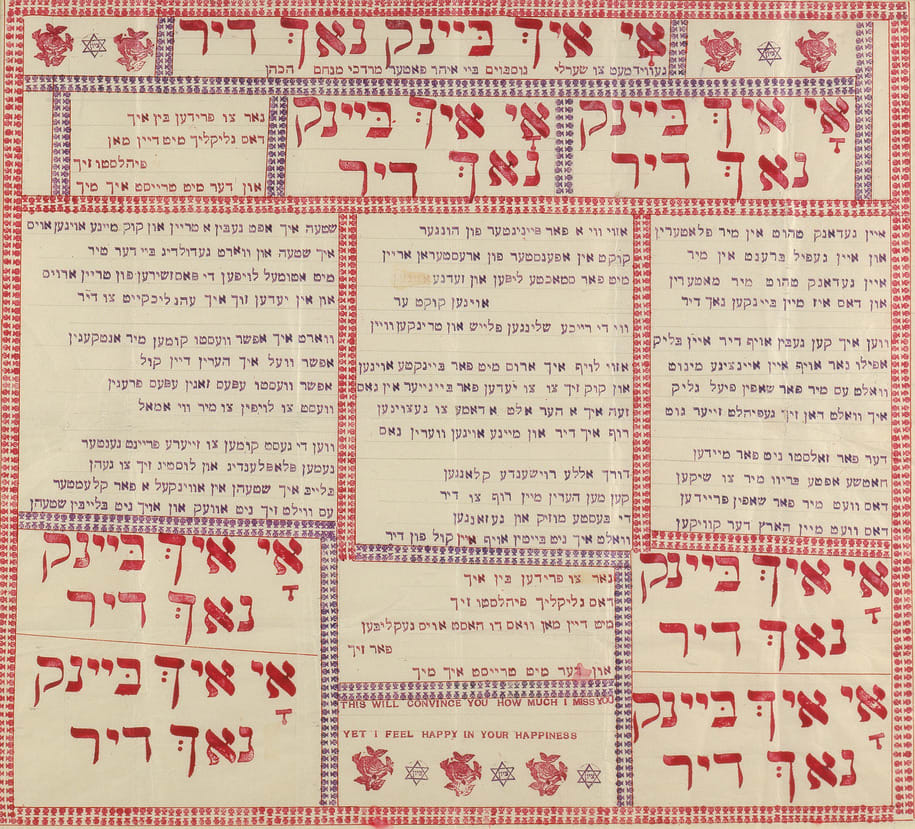 אָי איךְ בּיינק נאךְ דיר
געווידמעט צו שערלי נוספוים ביי איהר פאטער מרדכי מנחם הכהן
אָי איךְ בּיינק
נאךְ דיר
אָי איךְ בּיינק
נאךְ דיר
נאר צו פרידען בין איך
דאס גליקליך מיט דיין מאן
פיהלסטו זיך
און דער מיט טרייסט איך מיך
איין געדאנק טהוט אין מיר פלאטערין
און איין געפיל ברענט אין מיר
איין געדאנק טהוט מיר מאטערין
און דאס איז מיין ביינקען נאך דיר
ווען איך קען געבין אויף דיר איין בליק
אפילו נאר אויף איין איינצינע מינוט
וואלט עס מיר פאר שאפין פיעל גליק
איך וואלט דאן זיך געפיהלט זייער גוט
דער פאר זאלסטו ניט פאר מיידען
חאטשע אפטע בריוו מיר צו שיקען
דאס וועט מיר פאר שאפין פריידען
דאס וועט מיין הארץ דער קוויקען
אזוי ווי א פאר ביינינטער פון הונגער
קוקט אין אפענסטער פון ארעסטעראן אריין
מיט פאר סמאכטע ליפען און זעדנע
אוינען קוקט ער
ווי די רייכע שלינגען פלייש און טרינקען וויין
אזוי לויף איך ארום מיט פאר ביינקטע אוינען
און קוק זיך צו צו יעדען פאר בייגייער אין גאס
זעה איך א הער אלט א דאמע צו געצוינען
רוף איך דיר און מיינע אוינען ווערין נאס
דורך אללע רוישענדע קלאנגען
קען מען הערין מיין רוף צו דיר
די בעסטע מוזיק און געזאנגען
וואלט איך ניט בייטין אויף איין קול פון דיר
שטעה איך אפט געבין א טריין און קוק מיינע אוינען אויס
איך שטעה און ווארט געדולדיג ביי דער טיר
מיט אמאל לויפען די פאסאזשירען פון טריין ארויס
און אין יעדען זוך איך עהנליכקייט צו דיר
ווארט איך אפשר וועסטו קומען מיר אנטקעגין
אפשר וועל איך הערין דיין קול
אפשר וועסטו עפעס זאגין עפעס פרעגין
וועסט צו לויפין צו מיר ווי אמאל
ווען די געסט קומען צו זייערע פריינט גענטער
נעמען פלאפלענדיג און לוסטיג זיך צו געהן
בלייב איך שטעהן אין אווינקעל א פאר קלעמטער
עס ווילט זיך ניט אוועק און אויך ניט בלייבין שטעהן
אָי איךְ בּיינק
נאךְ דיר
אָי איךְ בּיינק
נאךְ דיר
נאר צו פרידען בין איך
דאס גליקליך פיהלסטו זיך
מיט דיין מאן וואס דו האסט אויס געקליבען
פאר זיך
און דער מיט טרייסט איך מיך
THIS WILL CONVINCE YOU HOW MUCH I MISS YOU
YET I FEEL HAPPY IN YOUR HAPPINESS
ציון ציון ציון
אָי איךְ בּיינק
נאךְ דיר
אָי איךְ בּיינק
נאךְ דיר